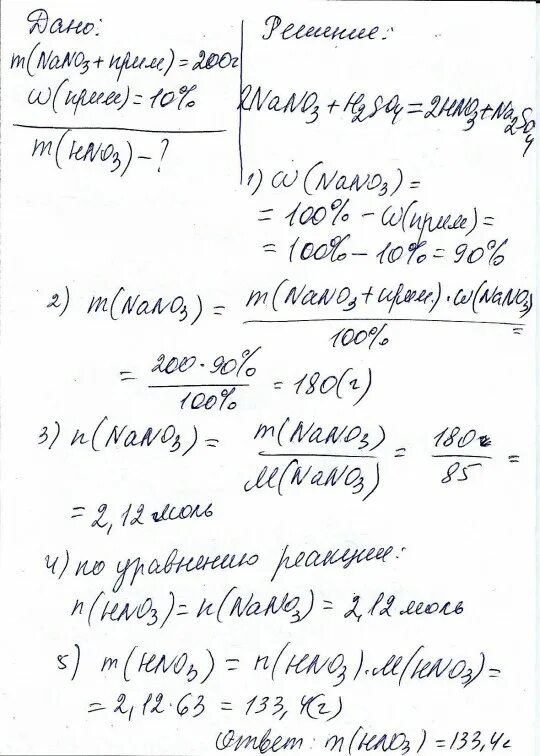 Дано:
m(NaNO₃ + прим) = 200г
ω(прим) = 10%
m(HNO₃) - ?
Решение:
2NaNO₃ + H₂SO₄ = 2HNO₃ + Na₂SO₄
1) ω(NaNO₃) =
= 100% - ω(прим) =
= 100% - 10% = 90%
2) m(NaNO₃) = m(NaNO₃ + прим) · ω(NaNO₃) / 100% =
= 200 · 90% / 100% = 180(г)
3) n(NaNO₃) = m(NaNO₃) / M(NaNO₃) = 180г / 85 =
= 2,12 моль
4) по уравнению реакции:
n(HNO₃) = n(NaNO₃) = 2,12 моль
5) m(HNO₃) = n(HNO₃) · M(HNO₃) =
= 2,12 · 63 = 133,4(г)
Ответ: m(HNO₃) = 133,4г